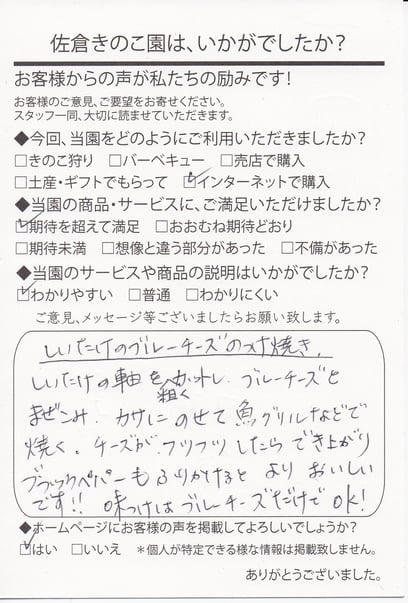 佐倉きのこ園は、いかがでしたか？
お客様からの声が私たちの励みです！
お客様のご意見、ご要望をお寄せください。
スタッフ一同、大切に読ませていただきます。
◆今回、当園をどのようにご利用いただきましたか？
□きのこ狩り □バーベキュー □売店で購入
□土産・ギフトでもらって ☑インターネットで購入
◆当園の商品・サービスに、ご満足いただけましたか？
☑期待を超えて満足 □おおむね期待どおり
□期待未満 □想像と違う部分があった □不備があった
◆当園のサービスや商品の説明はいかがでしたか？
☑わかりやすい □普通 □わかりにくい
ご意見、メッセージ等ございましたらお願い致します。
しいたけのブルーチーズのつけ焼き。
しいたけの軸を粗くカットし、ブルーチーズと
まぜこみ、カサにのせて魚グリルなどで
焼く。チーズがフツフツしたらでき上がり
ブラックペパーもふりかけるとよりおいしい
です!! 味つけはブルーチーズだけでOK!
◆ホームページにお客様の声を掲載してよろしいでしょうか？
☑はい □いいえ ＊個人が特定できる様な情報は掲載致しません。
ありがとうございました。